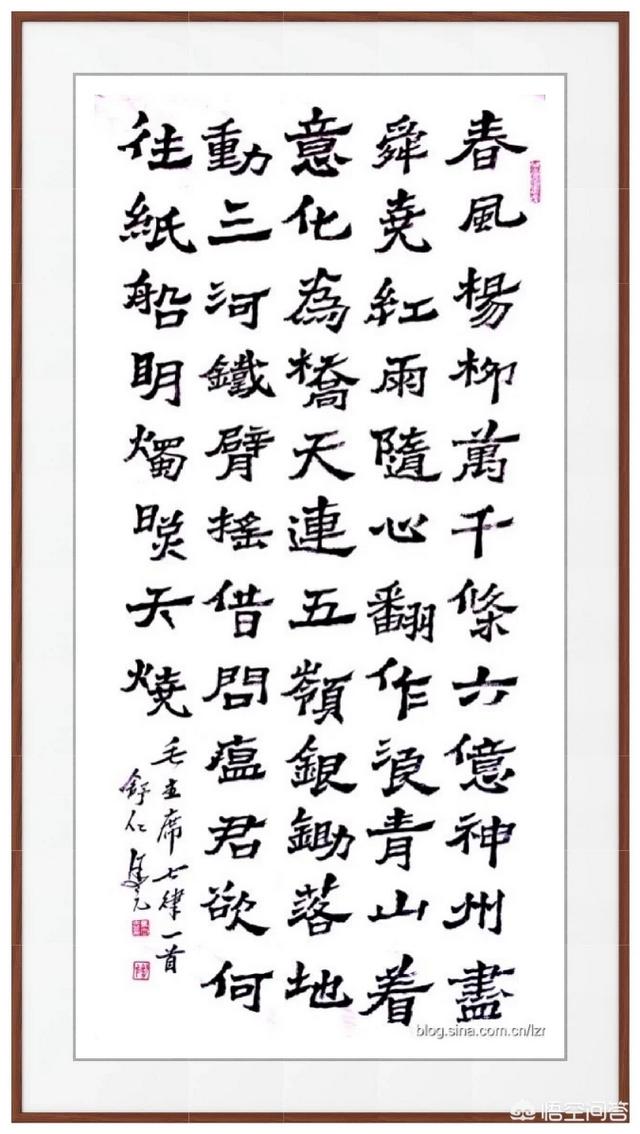 春風楊柳萬千條六億神州盡
舜堯紅雨隨心翻作浪青山着
意化為橋天連五嶺銀鋤落地
動三河鐵臂搖借問瘟君欲何
往紙船明燭照天燒
毛主席七律一首
舒仁
blog.sina.com.cn/lzr
悟空问答